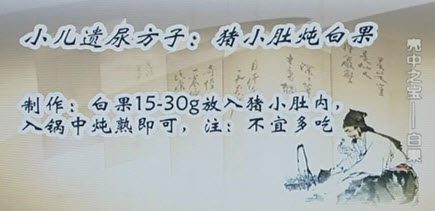 小儿遗尿方子：猪小肚炖白果
制作：白果15-30g放入猪小肚内，
入锅中炖熟即可，注：不宜多吃
壳中之宝——白果